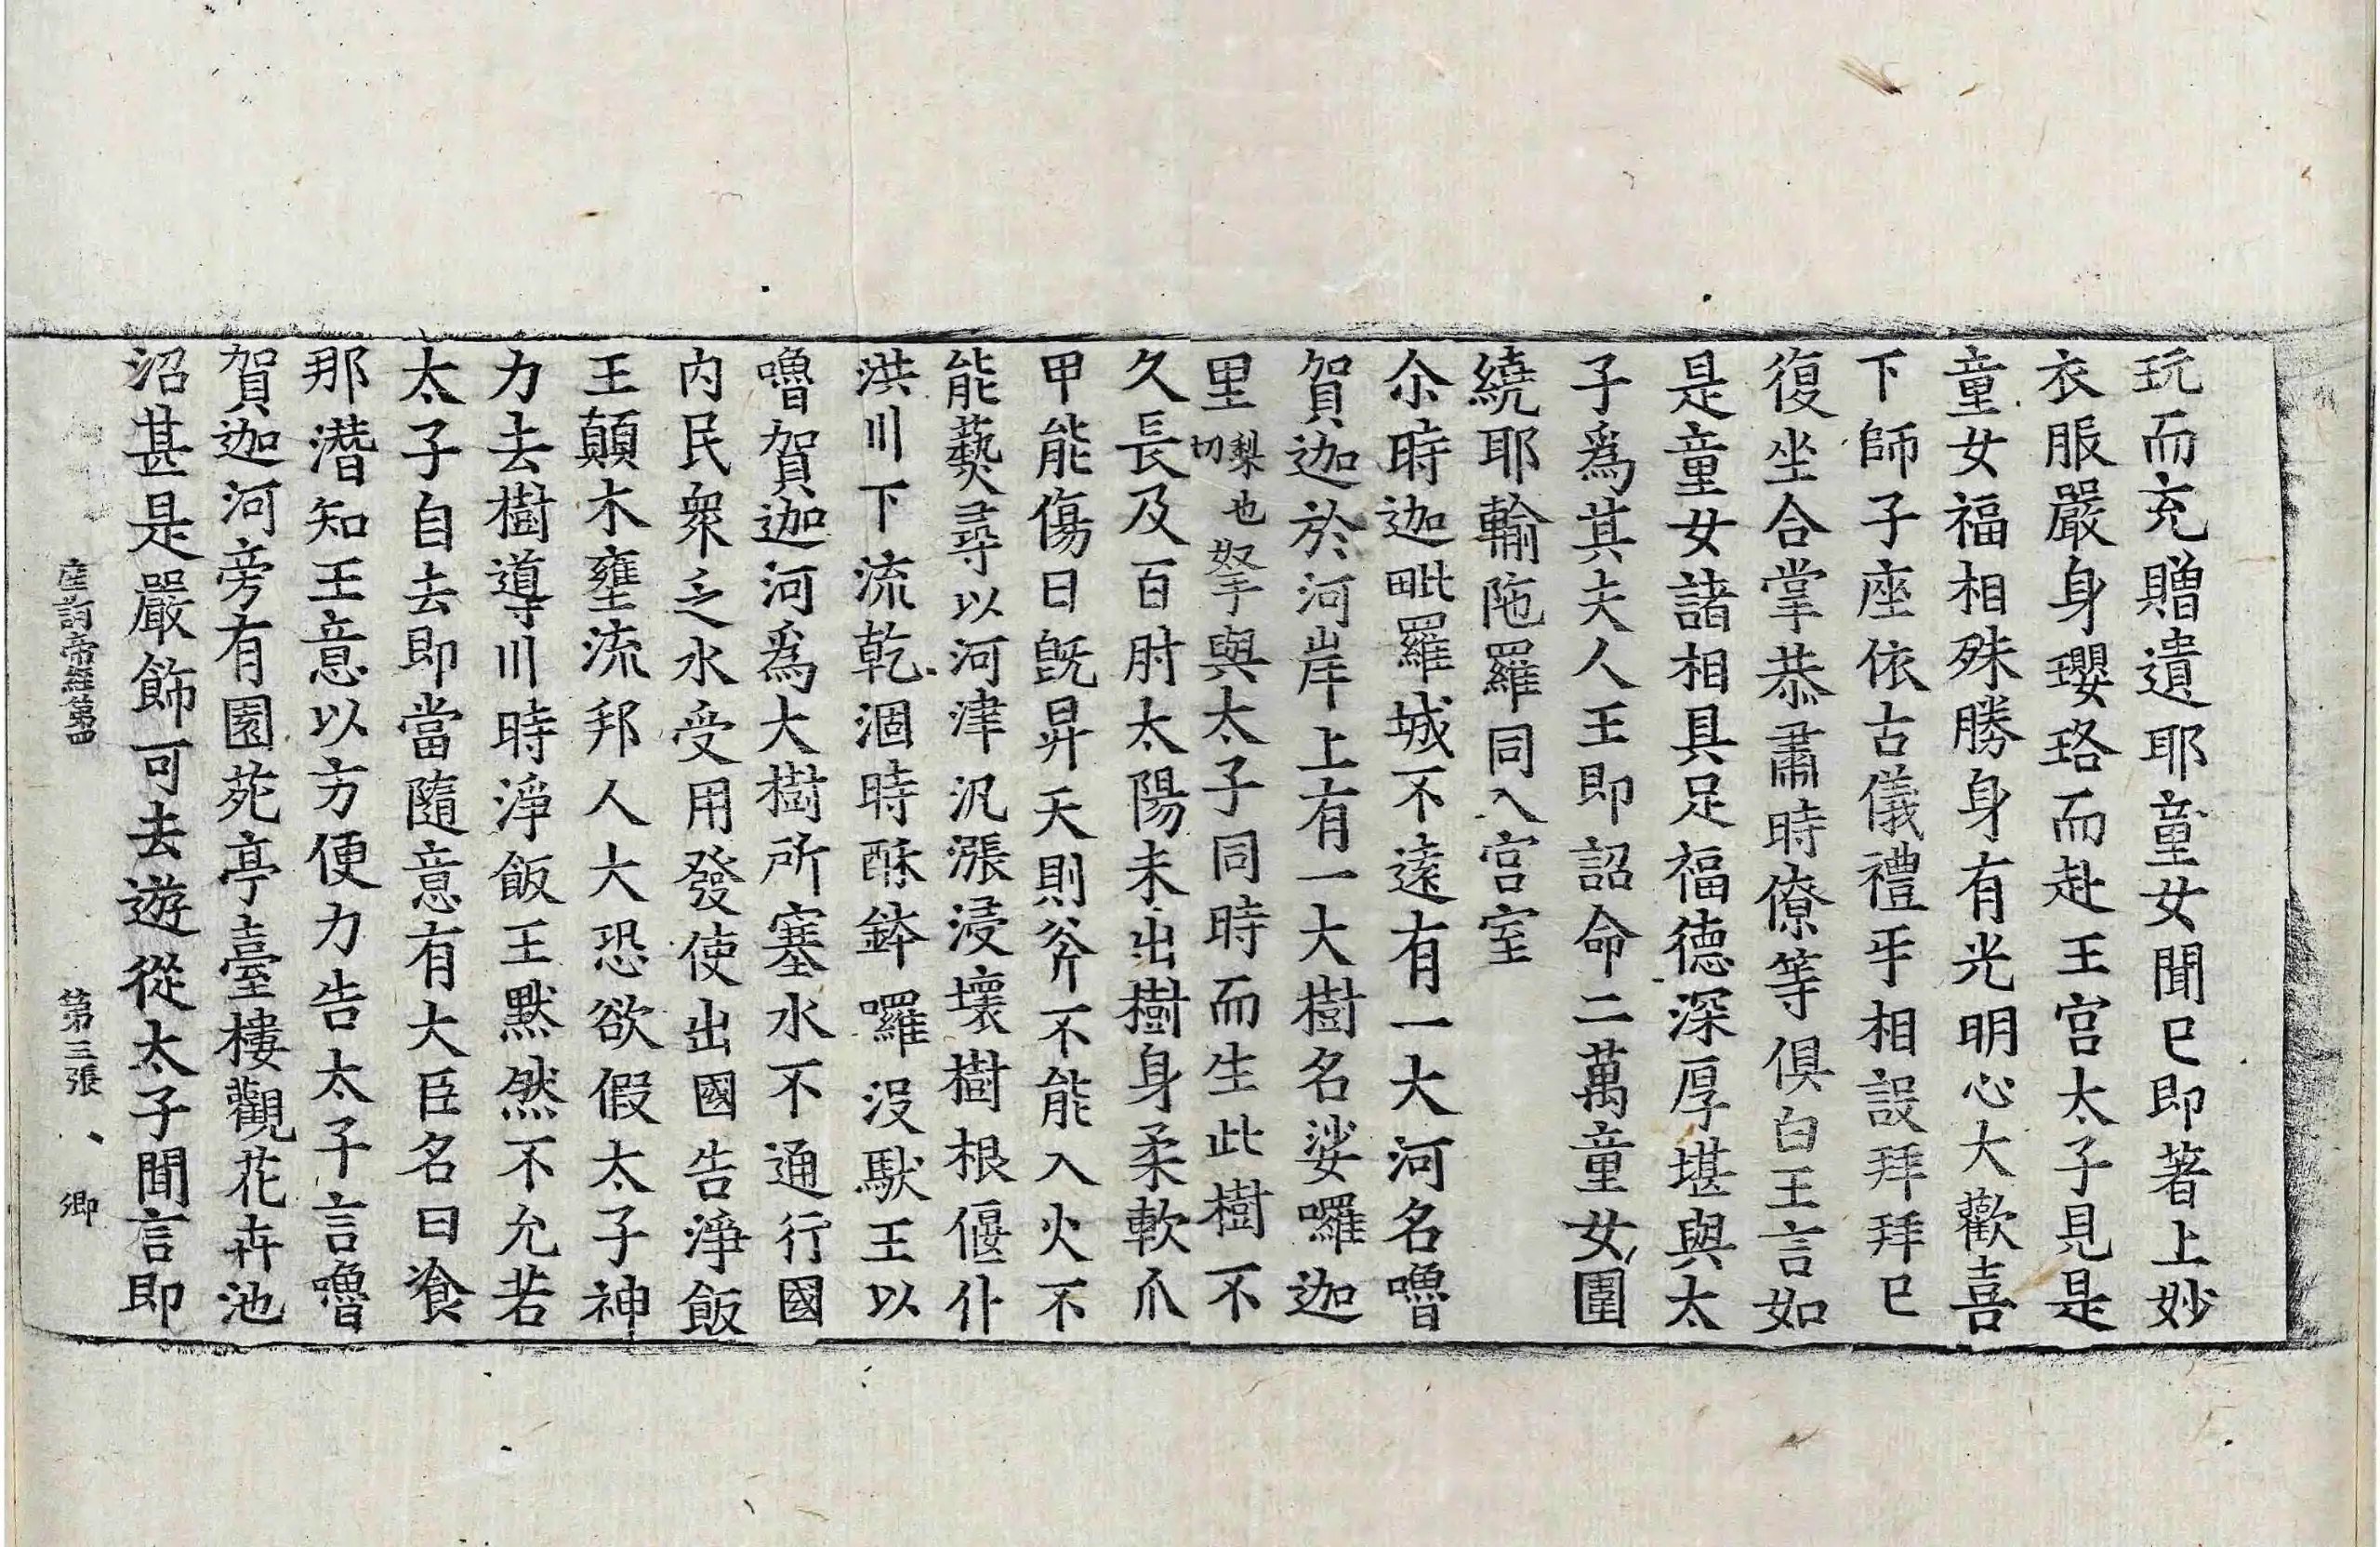 玩而充贈遺耶童女聞巳即著上妙
衣服嚴身瓔珞而赴王宫太子見是
童女福相殊勝身有光明心大歡喜
下師子座依古儀禮平相設拜拜巳
復坐合掌恭肅時僚等俱白王言如
是童女諸相具足福德深厚堪與太
子爲其夫人王即詔命二萬童女圍
繞耶輸陁羅同入宫室
尒時迦毗羅城不遠有一大河名嚕
賀迦於河岸上有一大樹名娑囉迦
里梨也切拏與太子同時而生此樹不
久長及百肘太陽未出樹身柔軟爪
甲能傷日旣昇天則斧不能入火不
能爇尋以河津汎漲浸壞樹根偃仆
洪川下流乾涸時酥鉢囉没馱王以
嚕賀迦河爲大樹所塞水不通行國
内民衆乏水受用發使出國告淨飯
王顛木壅流邦人大恐欲假太子神
力去樹導川時淨飯王默然不允若
太子自去即當隨意有大臣名曰飡
那潛知王意以方便力告太子言嚕
賀迦河旁有園苑亭臺樓觀花卉池
沼甚是嚴飾可去遊從太子聞言即
帝經第四 第三張 卿